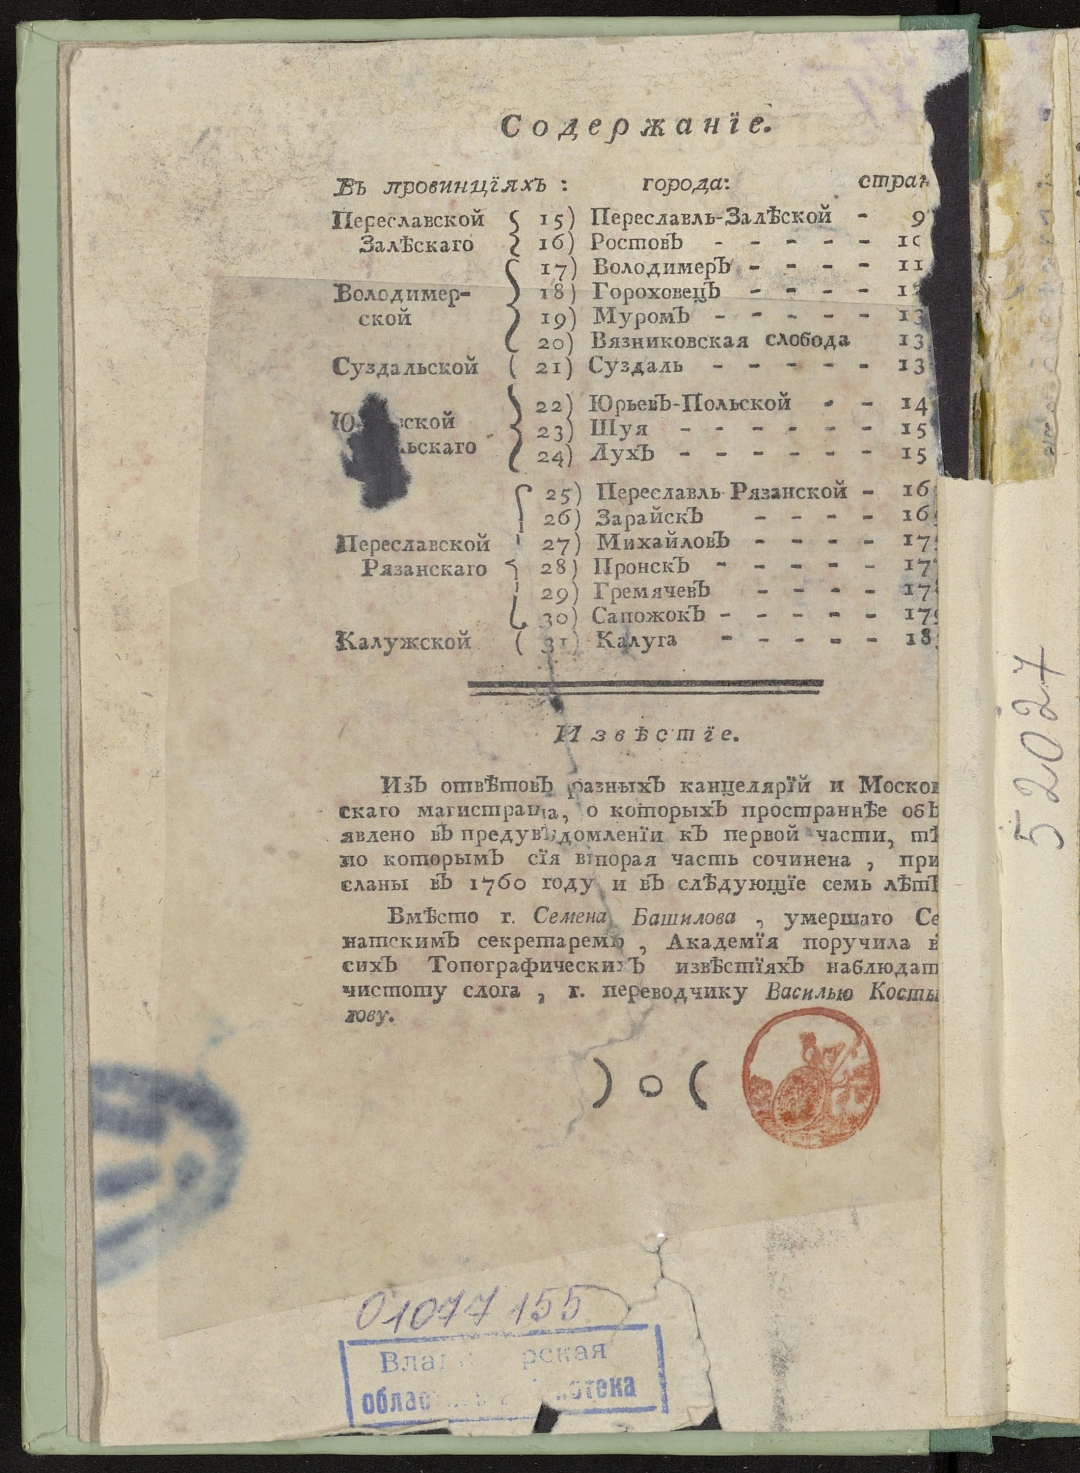 Содержанїе.
Въ провинцїяхъ : города: стран
Переславской 15) Переславль-Залѣской - 9
Залѣскаго 16) Ростовъ - - - - -
17) Володимеръ - - - - 11
Володимер- 18) Гороховецъ - - - -
ской 19) Муромъ - - - - - 13
20) Вязниковская слобода 13
Суздальской ( 21) Суздаль - - - - - 13
22) Юрьевъ-Польской - - 14
23) Шуя - - - - - - 15
24) Лухъ - - - - - - 15
25) Переславль Рязанской - 16
26) Зарайскъ - - - - 16
Переславской 27) Михайловъ - - - - 17
Рязанскаго 28) Пронскъ - - - - - 17
29) Гремячевъ - - - - 17
30) Сапожокъ - - - - - 17
Калужской ( 31) Калуга - - - - - 18
Извѣстїе.
Изъ отвѣтовъ разныхъ канцелярїй и Москов
скаго магистрата, о которыхъ пространнѣе объ
явлено въ предувѣдомленїи къ первой части, тѣ
по которымъ сїя вторая часть сочинена , при
сланы въ 1760 году и въ слѣдующїе семь лѣтъ
Вмѣсто г. Семена Башилова , умершаго Се
натскимъ секретаремъ , Академїя поручила в
сихъ Топографическихъ извѣстїяхъ наблюдат
чистоту слога , г. переводчику Василью Косты
лову.
) о (
01077155
52027